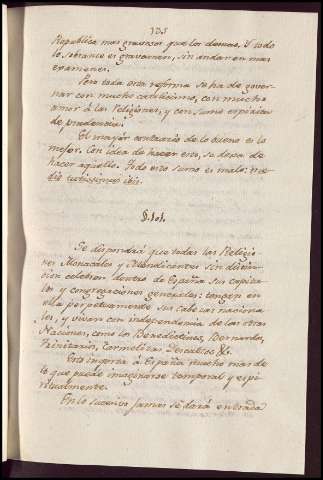 131
Republica mas gravosos que los demas. Y todo
lo sobrante es gravamen, sin andar en mas
examenes.
Pero toda esta reforma se ha de gover-
nar con mucho cuidado, con mucho
amor à las Religiones, y con sumo espiritu
de prudencia.
El mayor contrario de lo bueno es lo
mejor. Con idea de hacer esto, se dexa de
hacer aquello. Todo esto sumo es malo: me-
dio tutissimus ibis.
§. 101.
Se dispondrà que todas las Religio-
nes Monacales y Mendicantes sin distin-
cion celebren dentro de España sus capitu-
los y congregaciones generales: tengan en
ella perpetuamente sus cabezas naciona-
les, y vivan con independencia de las otras
Naciones, como los Benedictinos, Bernardos,
Trinitarios, Carmelitas Descalzos &c.
Esto importa à España mucho mas de
lo que puede imaginarse temporal y espi-
ritualmente.
En lo sucesivo jamas se darà entrada